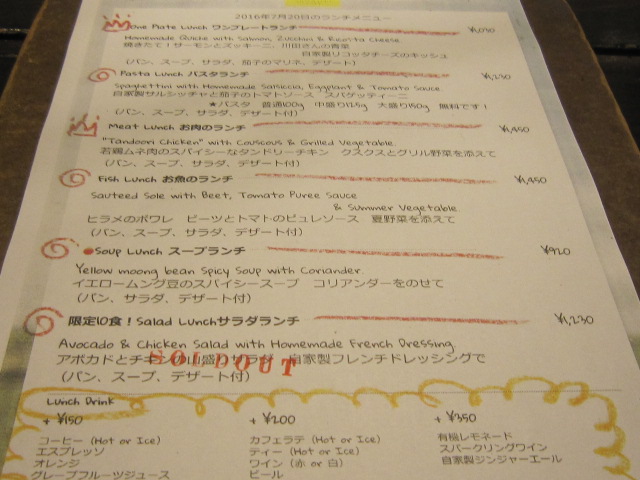 2016年7月20日のランチメニュー
One Plate Lunch ワンプレートランチ
Homemade Quiche with Salmon, Zucchini & Ricotta Cheese
焼きたて！サーモンとズッキーニ、川田さんの香菜
自家製リコッタチーズのキッシュ
(パン、スープ、サラダ、茄子のマリネ、デザート)
Pasta Lunch パスタランチ
Spaghettini with Homemade Salsiccia, Eggplant & Tomato Sauce
自家製サルシッチャと茄子のトマトソース スパゲッティーニ
★パスタ 普通100g 中盛り125g 大盛り150g 無料です！
(パン、スープ、サラダ、デザート付)
Meat Lunch お肉のランチ ¥1,450
"Tandoori Chicken" with Couscous & Grilled Vegetable
若鶏ムネ肉のスパイシーなタンドリーチキン クスクスとグリル野菜を添えて
(パン、スープ、サラダ、デザート付)
Fish Lunch お魚のランチ ¥1,450
Sauteed Sole with Beet, Tomato Puree Sauce
& Summer Vegetable
ヒラメのポワレ ビーツとトマトのピュレソース 夏野菜を添えて
(パン、スープ、サラダ、デザート付)
●Soup Lunch スープランチ ¥920
Yellow moong bean Spicy Soup with Coriander
イエロームング豆のスパイシースープ コリアンダーをのせて
(パン、サラダ、デザート付)
限定10食！Salad Lunchサラダランチ ¥1,230
Avocado & Chicken Salad with Homemade French Dressing
アボカドとチキンの山盛りサラダ 自家製フレンチドレッシングで
SOLDOUT
(パン、スープ、デザート付)
Lunch Drink
+ ¥150 + ¥200 + ¥350
コーヒー (Hot or Ice) カフェラテ (Hot or Ice) 有機レモネード
エスプレッソ ティー (Hot or Ice) スパークリングワイン
オレンジ ワイン (赤 or 白) 自家製ジンジャーエール
グレープフルーツジュース ビール